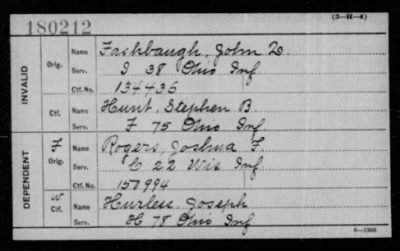 (3-H-4)
180212
INVALID
Orig.
Name Fashbaugh, John D.
Serv. I 38 Ohio Inf
Ctf. No. 134435
Ctf.
Name Hunt, Stephen B.
Serv. F 75 Ohio Inf.
DEPENDENT
F
Orig.
Name Rogers, Joshua F.
Serv. C 22 Wis Inf
Ctf. No. 157994
W
Ctf.
Name Hurless, Joseph
Serv. H 78 Ohio Inf